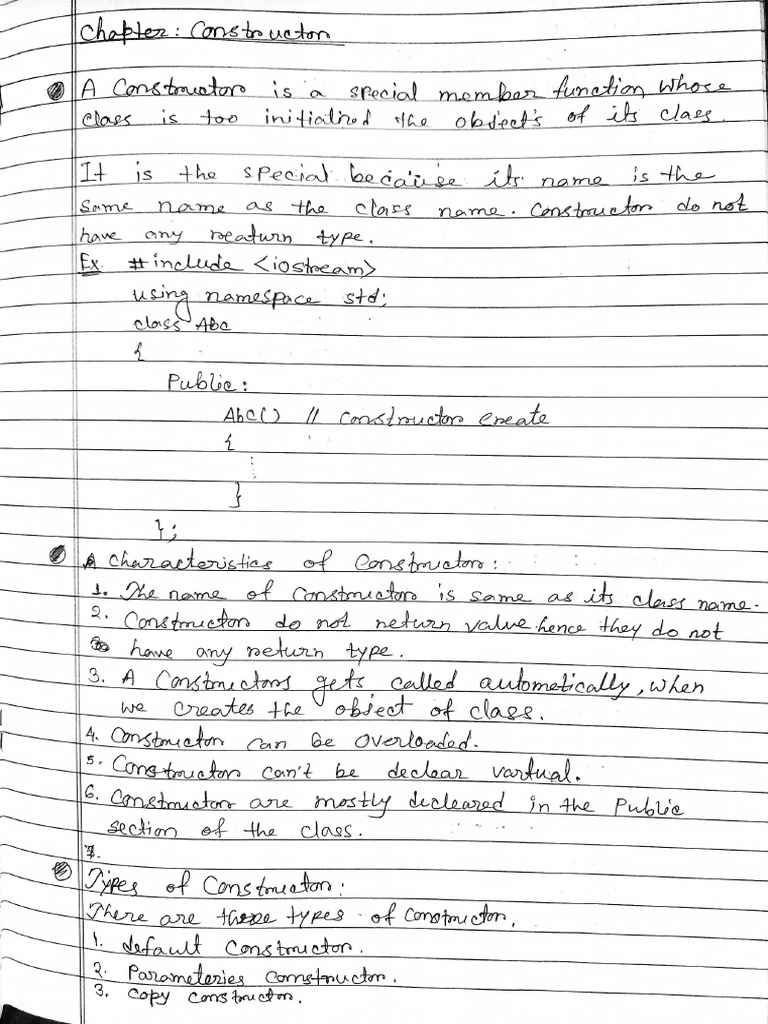 Chapter: Constructor
A Constructor is a special member function whose
class is too initialized the object's of its class.
It is the special because its name is the
same name as the class name. Constructor do not
have any reaturn type.
Ex. #include <iostream>
using namespace std;
class Abc
{
Public:
Abc() // constructor create
{
⋮
}
};
Characteristics of Constructor:
1. The name of Constructor is same as its class name.
2. Constructor do not return value hence they do not
have any return type.
3. A Constructors gets called automatically, when
we creates the object of class.
4. Constructor can be overloaded.
5. Constructor can't be declear vartual.
6. Constructor are mostly decleared in the Public
section of the class.
7.
Types of Constructor:
There are three types of constructor.
1. default Constructor.
2. Parameteries comstructor.
3. copy constructor.